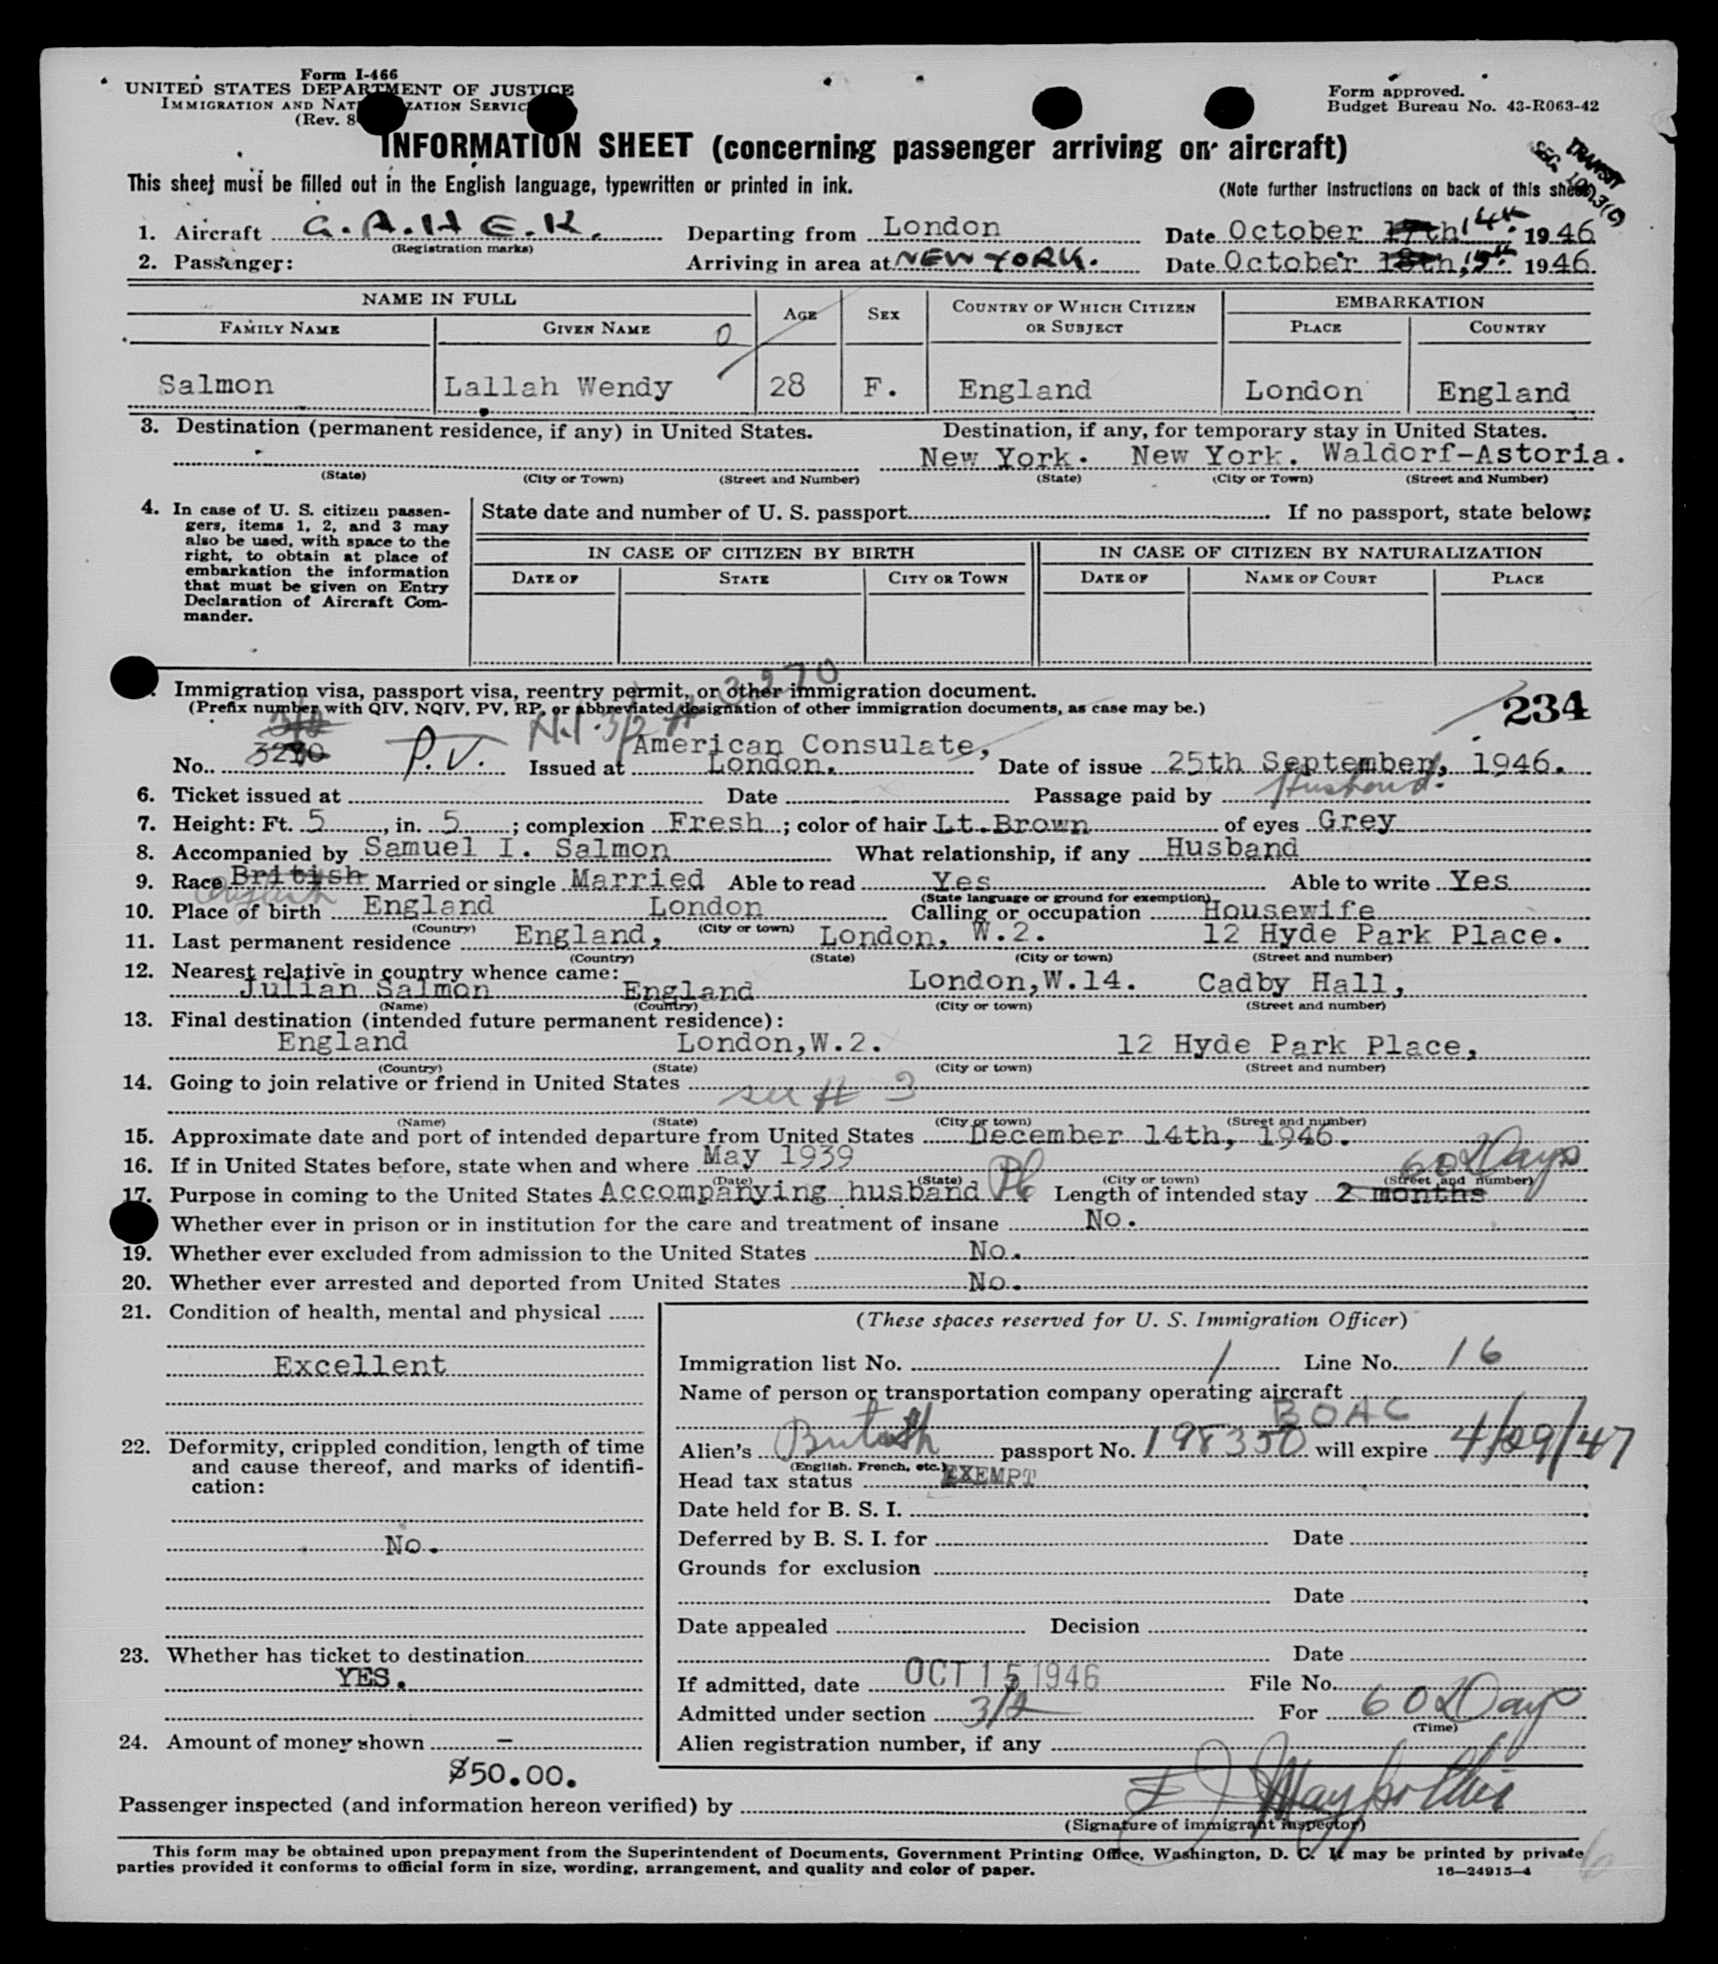 Form I-466
UNITED STATES DEPARTMENT OF JUSTICE
IMMIGRATION AND NATURALIZATION SERVICE
(Rev. 8
Form approved.
Budget Bureau No. 43-R063-42
INFORMATION SHEET (concerning passenger arriving on aircraft)
TRANSIT
This sheet must be filled out in the English language, typewritten or printed in ink.
(Note further instructions on back of this sheet)
1. Aircraft G.A.H.E.K. Departing from London Date October 17th 14th 1946
(Registration marks)
2. Passenger: Arriving in area at NEW YORK. Date October 18th, 15th 1946.
NAME IN FULL AGE SEX COUNTRY OF WHICH CITIZEN OR SUBJECT EMBARKATION
FAMILY NAME GIVEN NAME 0 PLACE COUNTRY
Salmon Lallah Wendy 28 F. England London England
3. Destination (permanent residence, if any) in United States. Destination, if any, for temporary stay in United States.
New York. New York. Waldorf-Astoria.
(State) (City or Town) (Street and Number) (State) (City or Town) (Street and Number)
4. In case of U. S. citizen passen-
gers, items 1, 2, and 3 may
also be used, with space to the
right, to obtain at place of
embarkation the information
that must be given on Entry
Declaration of Aircraft Com-
mander.
State date and number of U. S. passport If no passport, state below:
IN CASE OF CITIZEN BY BIRTH IN CASE OF CITIZEN BY NATURALIZATION
DATE OF STATE CITY OR TOWN DATE OF NAME OF COURT PLACE
Immigration visa, passport visa, reentry permit, or other immigration document.
(Prefix number with QIV, NQIV, PV, RP, or abbreviated designation of other immigration documents, as case may be.)
234
N.I. 3/2 # 3270
No. 3270 P.V. Issued at American Consulate, London. Date of issue 25th September, 1946.
6. Ticket issued at Date Passage paid by Husband.
7. Height: Ft. 5, in. 5; complexion Fresh; color of hair Lt.Brown of eyes Grey
8. Accompanied by Samuel I. Salmon What relationship, if any Husband
9. Race British Married or single Married Able to read Yes Able to write Yes
English
(State language or ground for exemption)
10. Place of birth England London Calling or occupation Housewife
(Country) (City or town)
11. Last permanent residence England, London, W.2. 12 Hyde Park Place.
(Country) (State) (City or town) (Street and number)
12. Nearest relative in country whence came:
Julian Salmon England London,W.14. Cadby Hall,
(Name) (Country) (City or town) (Street and number)
13. Final destination (intended future permanent residence):
England London,W.2. 12 Hyde Park Place,
(Country) (State) (City or town) (Street and number)
14. Going to join relative or friend in United States
see # 3
(Name) (State) (City or town) (Street and number)
15. Approximate date and port of intended departure from United States December 14th, 1946.
16. If in United States before, state when and where May 1939
(Date) (State) (City or town) (Street and number)
60 Days
17. Purpose in coming to the United States Accompanying husband Length of intended stay 2 months
Whether ever in prison or in institution for the care and treatment of insane No.
19. Whether ever excluded from admission to the United States No.
20. Whether ever arrested and deported from United States No.
21. Condition of health, mental and physical
Excellent
22. Deformity, crippled condition, length of time
and cause thereof, and marks of identifi-
cation:
No.
23. Whether has ticket to destination
YES.
24. Amount of money shown -
$50.00.
(These spaces reserved for U. S. Immigration Officer)
Immigration list No. 1 Line No. 16
Name of person or transportation company operating aircraft
BOAC
Alien's British passport No. 198350 will expire 4/29/47
(English, French, etc.)
Head tax status EXEMPT
Date held for B. S. I.
Deferred by B. S. I. for Date
Grounds for exclusion
Date
Date appealed Decision
Date
If admitted, date OCT 15 1946 File No.
Admitted under section 3/2 For 60 Days
(Time)
Alien registration number, if any
Passenger inspected (and information hereon verified) by
(Signature of immigrant inspector)
This form may be obtained upon prepayment from the Superintendent of Documents, Government Printing Office, Washington, D. C. It may be printed by private
parties provided it conforms to official form in size, wording, arrangement, and quality and color of paper.
16—24915-4